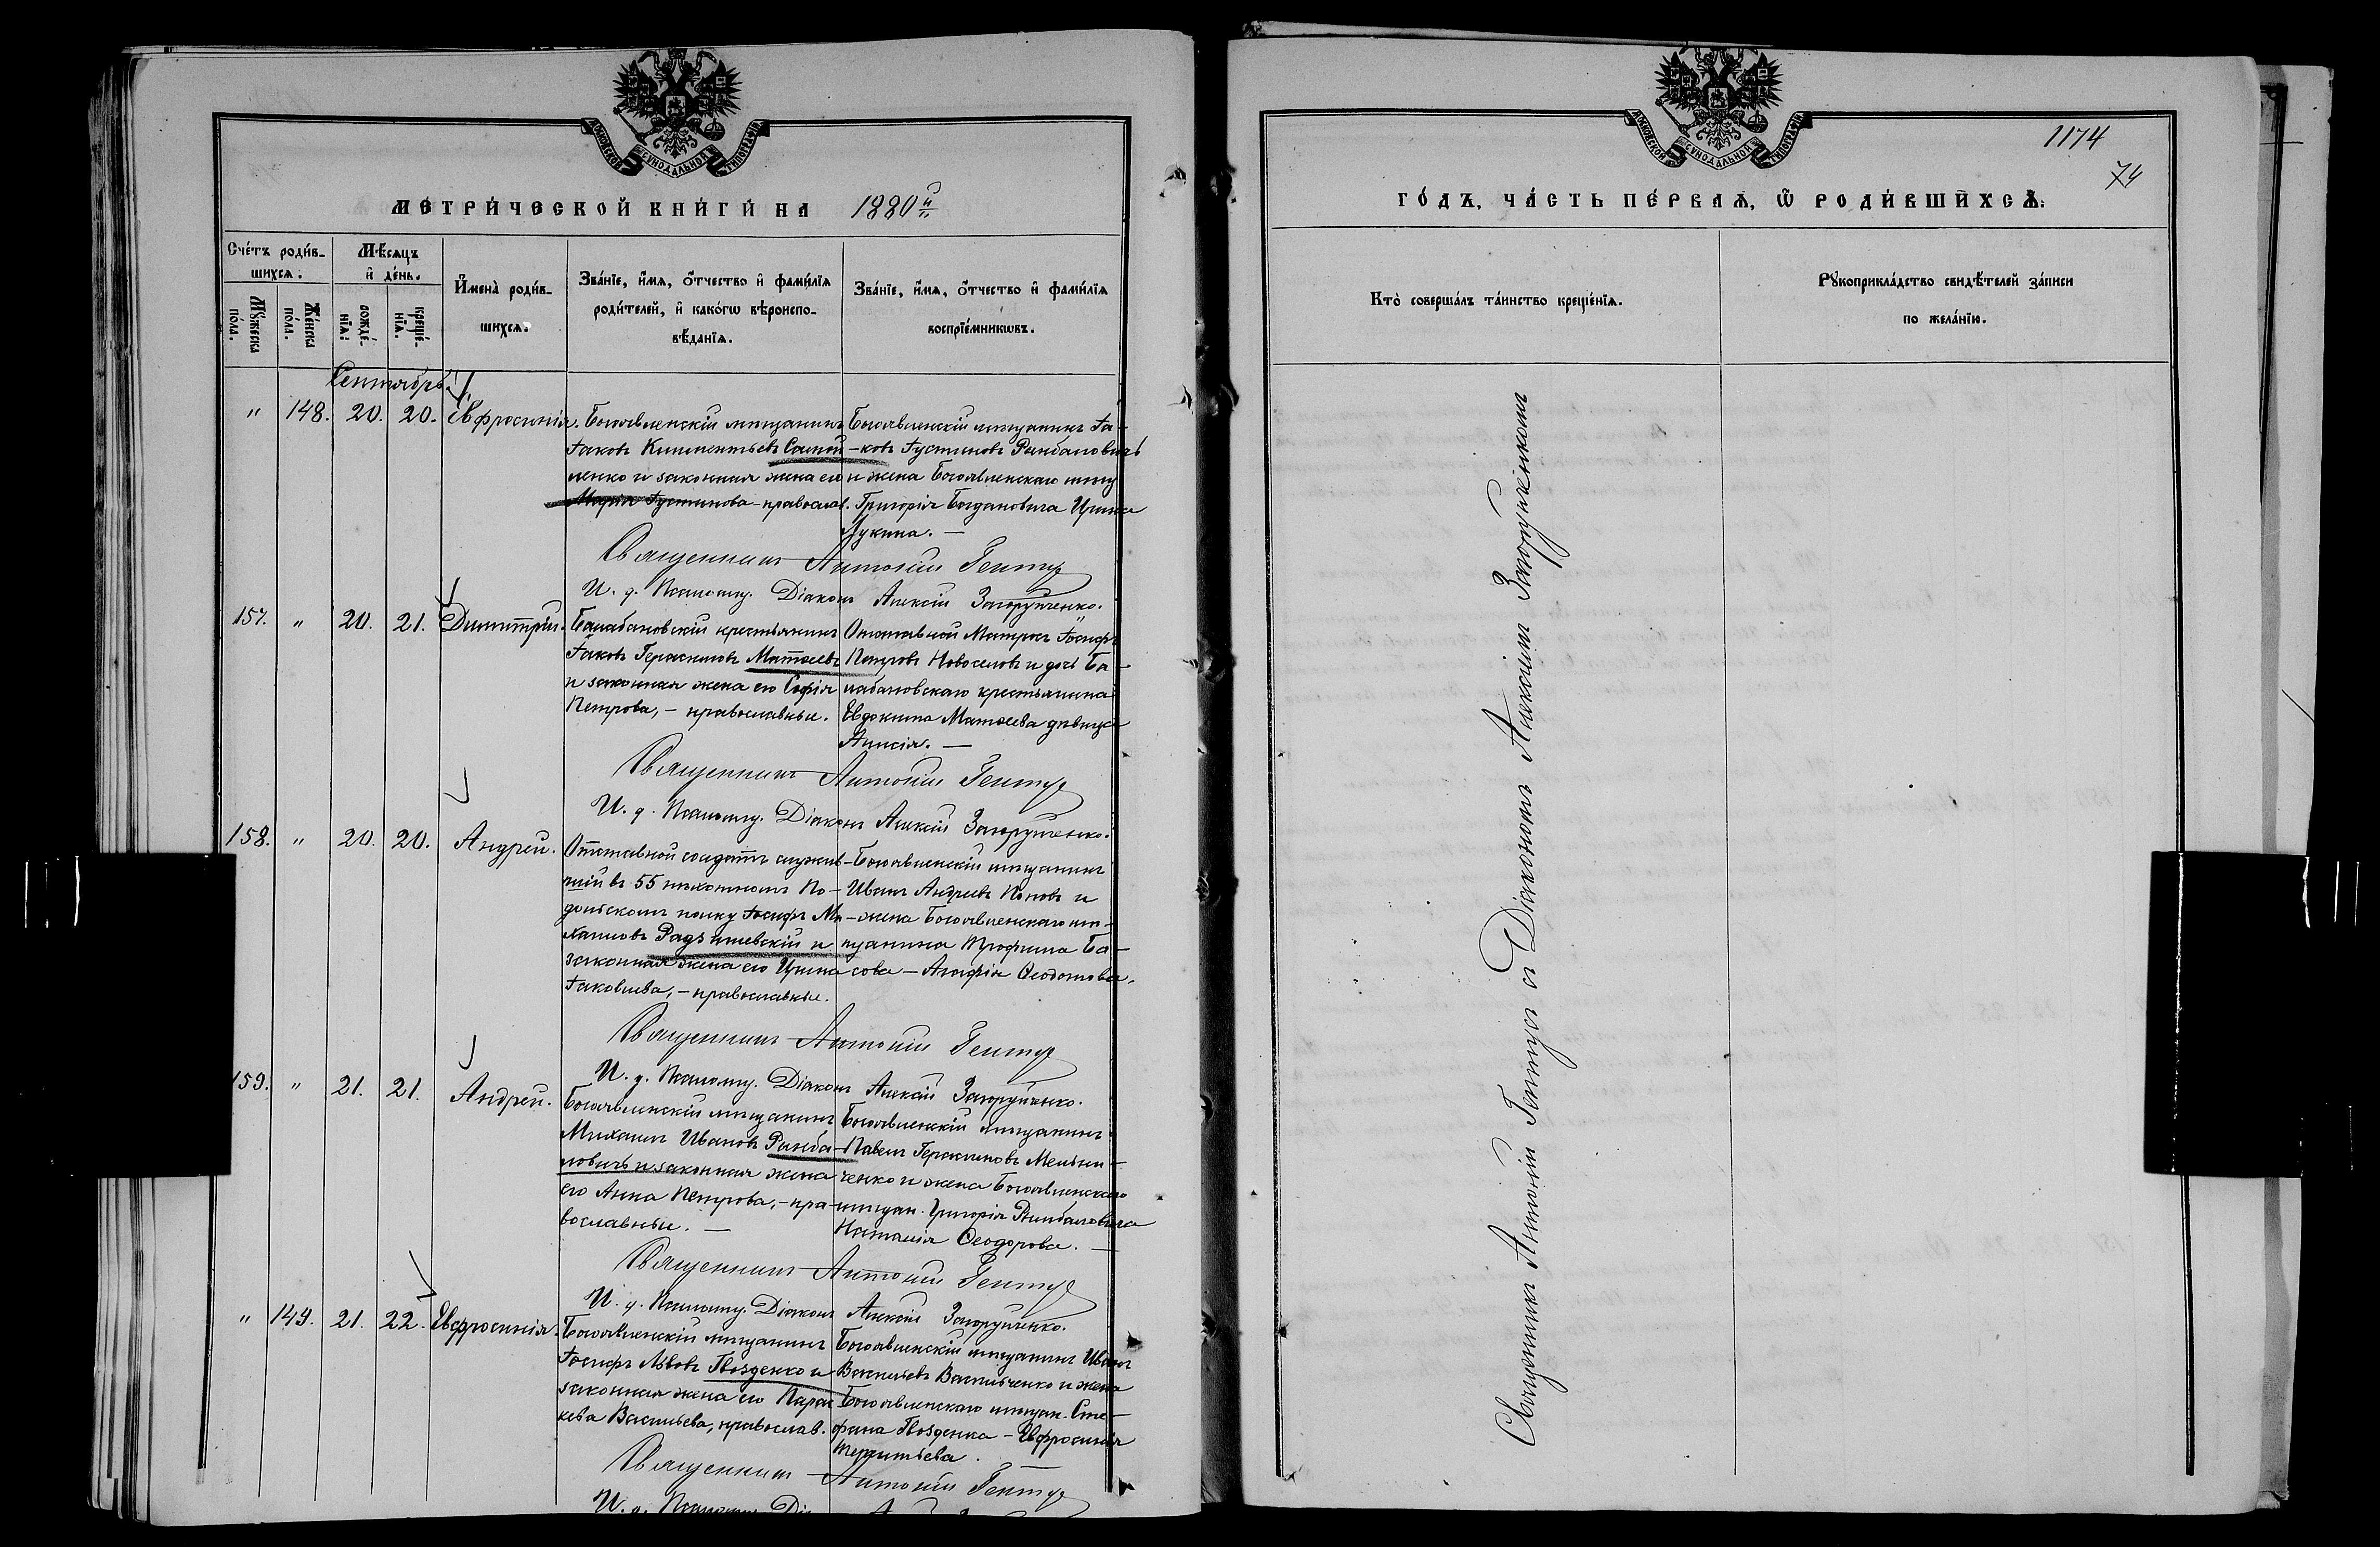 МОСКОВСКОЙ СѴНОДАЛЬНОЙ ТИПОГРАФІИ
МЕТРИ́ЧЕСКОЙ КНИ́ГИ НА 1880й
Сче́тъ роди́в-
шихся.
Мꙋ́жеска по́ла.
Же́нска по́ла.
Мѣ́сяцъ
и҆ де́нь.
рожде́-нїѧ.
креще́-нїѧ.
И҆мена̀ роди́в-
шихсѧ.
Зва́нїе, и҆́мѧ, ѻ҆́тчество и҆ фами́лїѧ
роди́телей, и҆ како́гѡ вѣроиспо-
вѣ́данїѧ.
Зва́нїе, и҆́мѧ, ѻ҆́тчество и҆ фами́лїѧ
воспрїе́мникѡвъ.
Сентябрь
" 148. 20. 20. Евфросинія.
Богоявленскій мѣщанинъ
Іаковъ Климентьевъ Самой-
ленко и законная жена его
Марія Іустинова - православ.
Богоявленскій мѣщанинъ Іа-
ковъ Іустиновъ Рымбаловичъ
и жена Богоявленскаго мѣщ
Григорія Богдановича Ирина
Лукина. —
Священникъ Антоній Гентуе
И. д. Псаломщ. Діаконъ Алексій Загоруйченко.
157. " 20. 21. Димитрій.
Балабановскій крестьянинъ
Іаковъ Герасимовъ Матвеевъ
и законная жена его Софія
Петрова, - православные.
Отставной Матросъ Іосифъ
Петровъ Новоселовъ и дочь Ба-
лабановскаго крестьянина
Евдокима Матвеева дѣвица
Анисія. —
Священникъ Антоній Гентуе
И. д. Псаломщ. Діаконъ Алексій Загоруйченко.
158. " 20. 20. Андрей.
Отставной солдатъ служив-
шій въ 55 пѣхотномъ По-
дольскомъ полку Іосифъ Ми-
хаиловъ Радзишевскій и
законная жена его Ирина
Іаковлева, - православные.
Богоявленскій мѣщанинъ
Иванъ Андреевъ Поповъ и
жена Богоявленскаго мѣ-
щанина Трофима Ба-
сова - Агафія Ѳеодотова.
Священникъ Антоній Гентуе
И. д. Псаломщ. Діаконъ Алексій Загоруйченко.
159. " 21. 21. Андрей.
Богоявленскій мѣщанинъ
Михаилъ Ивановъ Рымба-
ловичъ и законная жена
его Анна Петрова, - пра-
вославные. —
Богоявленскій мѣщанинъ
Павелъ Герасимовъ Мельни-
ченко и жена Богоявленскаго
мѣщан. Григорія Рымбаловича
Наталія Ѳеодорова. —
Священникъ Антоній Гентуе
И. д. Псаломщ. Діаконъ Алексій Загоруйченко.
" 149. 21. 22. Евфросинія.
Богоявленскій мѣщанинъ
Іосифъ Львовъ Гвозденко и
законная жена его Парас
кева Васильева, православ.
Богоявленскій мѣщанинъ Иванъ
Васильевъ Васильченко и жена
Богоявленскаго мѣщан. Сте-
фана Гвозденка - Евфросинія
Терентьева.
Священникъ Антоній Гентуе
И. д. Псаломщ.
МОСКОВСКОЙ СѴНОДАЛЬНОЙ ТИПОГРАФІИ
1174
74
ГО́ДЪ, ЧА́СТЬ ПЕ́РВАѦ, Ѿ РОДИ́ВШИХСѦ.
Кто̀ соверша́лъ та́инство креще́нїѧ.
Рꙋкоприкла́дство свидѣ́телей за́писи
по жела́нїю.
Священникъ Антоній Гентуе съ Діакономъ Алексіемъ Загоруйченкомъ